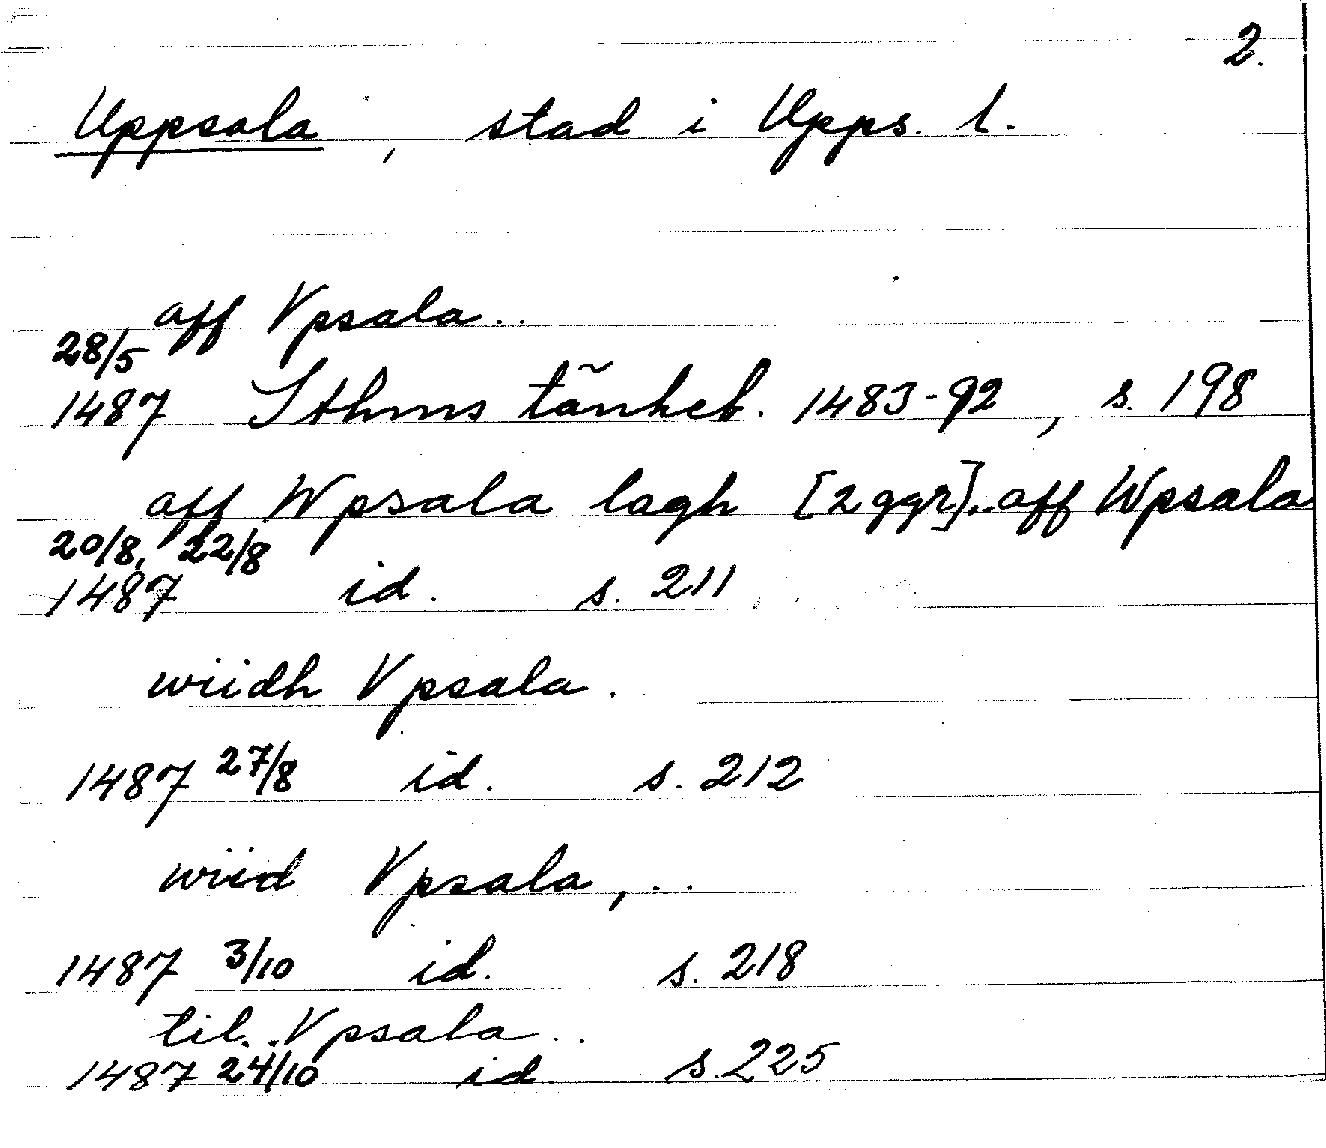 2.
Uppsala, stad i Upps. l.
aff Vpsala..
28/5
1487 Sthms tänkeb. 1483-92, s. 198
aff Wpsala lagh [2 ggr].. aff Wpsala
20/8, 22/8
1487 id. s. 211
wiidh Vpsala.
1487 27/8 id. s. 212
wiid Vpsala, ..
1487 3/10 id. s. 218
til.. Vpsala..
1487 24/10 id. s. 225